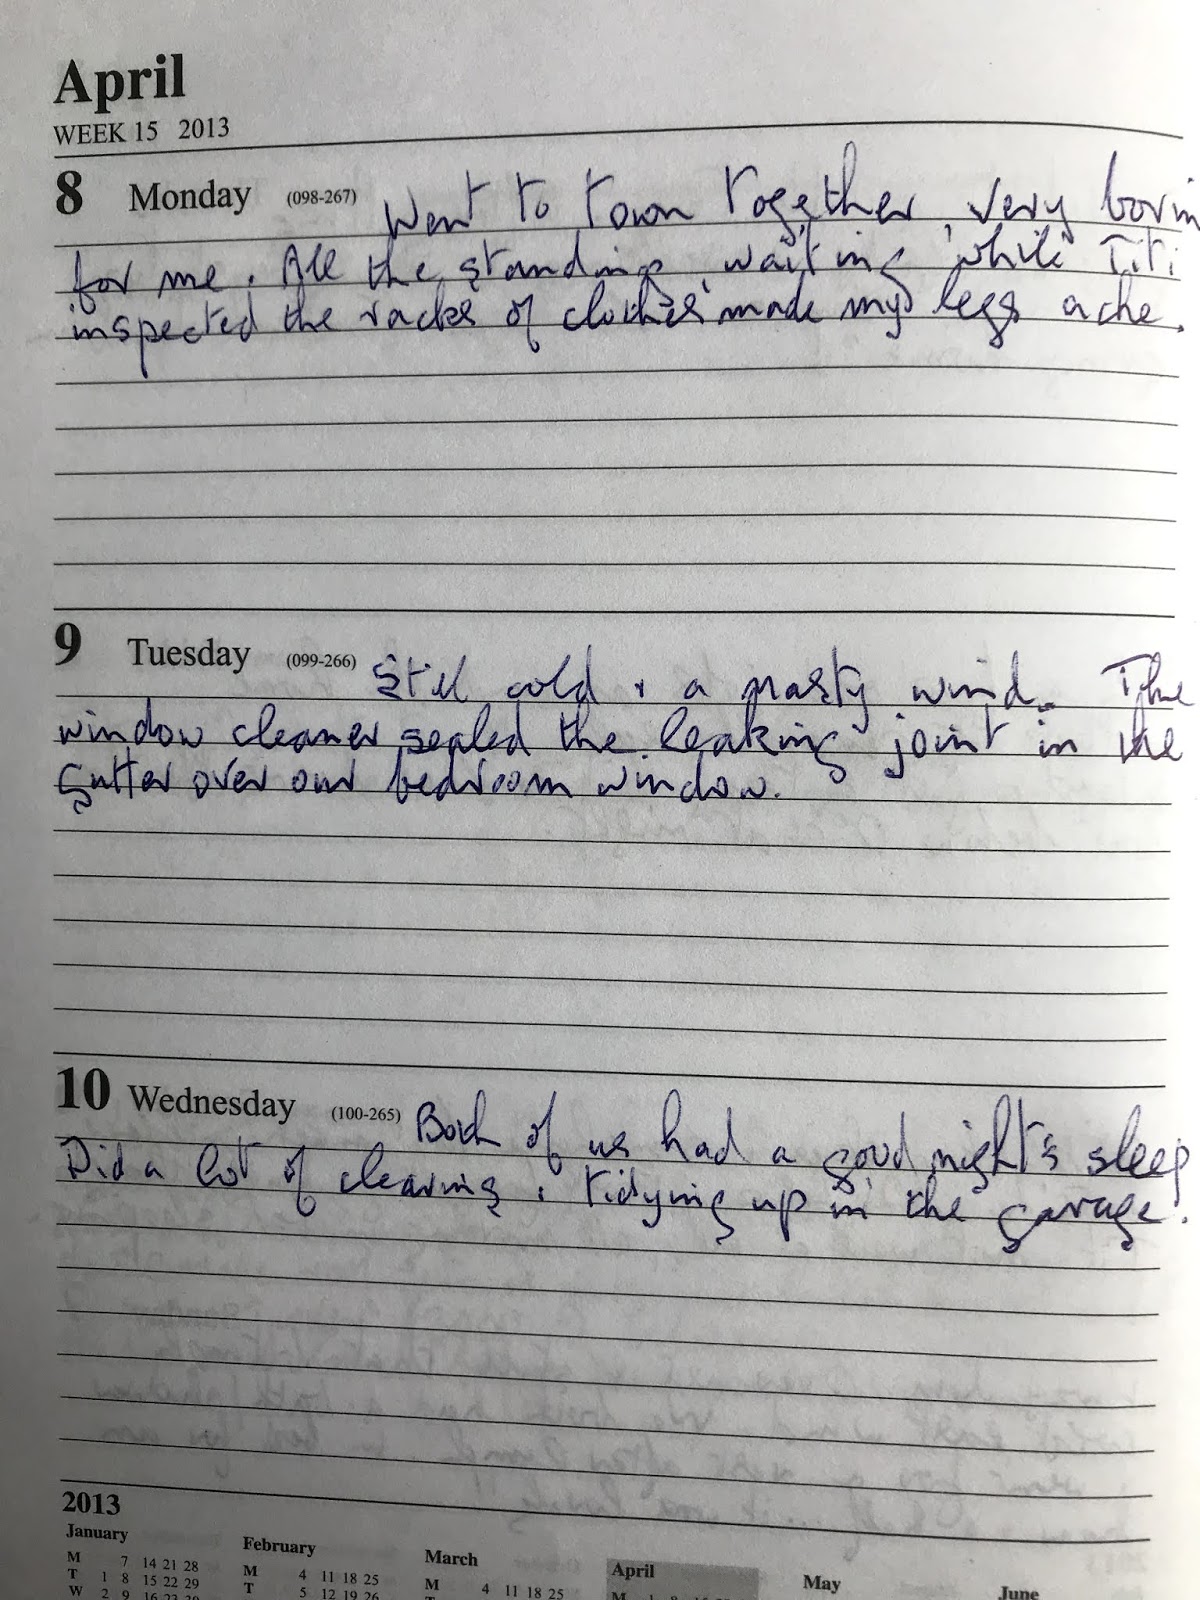 April
WEEK 15 2013
8 Monday (098-267) Went to town together very borin
for me. All the standing, waiting while Titi
inspected the racks of clothes made my legs ache.
9 Tuesday (099-266) Still cold & a nasty wind. The
window cleaner sealed the leaking joint in the
gutter over our bedroom window.
10 Wednesday (100-265) Both of us had a good night's sleep
Did a lot of clearing & tidying up in the garage.
2013
January February March April May June
M 7 14 21 28 M 4 11 18 25 M 4 11 18 25 M 1 8
T 1 8 15 22 29 T 5 12 19 26
W 2 9 16 23 30